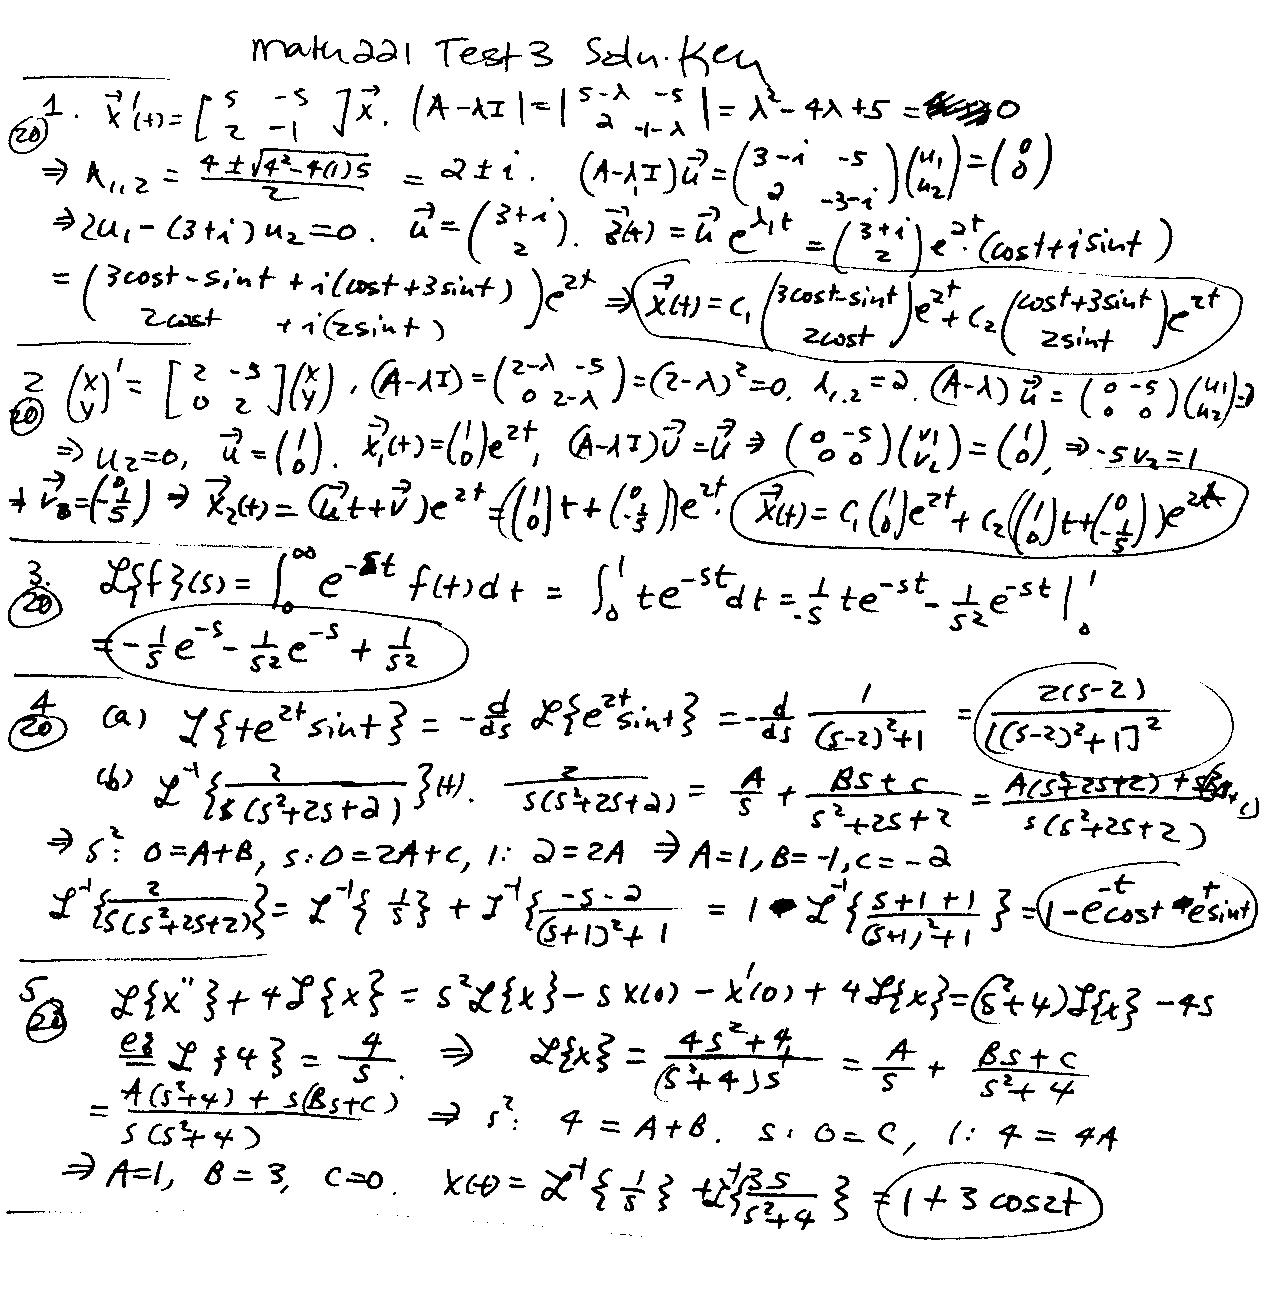 Math 221 Test 3 Soln. Key
1. (20) x⃗'(t) = [5 -5; 2 -1] x⃗. |A-λI| = |5-λ -5; 2 -1-λ| = λ² - 4λ + 5 = 0
⇒ λ₁,₂ = (4 ± √(4² - 4(1)5))/2 = 2 ± i. (A-λ₁I)u⃗ = (3-i -5; 2 -3-i)(u₁; u₂) = (0; 0)
⇒ 2u₁ - (3+i)u₂ = 0. u⃗ = (3+i; 2). z⃗(t) = u⃗ e^{λ₁t} = (3+i; 2) e^{2t}·(cost + i sint)
= (3cost - sint + i(cost + 3sint); 2cost + i(2sint)) e^{2t} ⇒ x⃗(t) = C₁(3cost - sint; 2cost)e^{2t} + C₂(cost + 3sint; 2sint)e^{2t}
2 (20) (x; y)' = [2 -5; 0 2](x; y), (A-λI) = (2-λ -5; 0 2-λ) = (2-λ)² = 0, λ₁,₂ = 2. (A-λ)u⃗ = (0 -5; 0 0)(u₁; u₂) = 0
⇒ u₂ = 0, u⃗ = (1; 0). x⃗₁(t) = (1; 0)e^{2t}, (A-λI)v⃗ = u⃗ ⇒ (0 -5; 0 0)(v₁; v₂) = (1; 0), ⇒ -5v₂ = 1
⇒ v⃗ = (0; -1/5) ⇒ x⃗₂(t) = (u⃗t + v⃗)e^{2t} = ((1; 0)t + (0; -1/5))e^{2t}. x⃗(t) = C₁(1; 0)e^{2t} + C₂((1; 0)t + (0; -1/5))e^{2t}
3. (20) ℒ{f}(s) = ∫₀^∞ e^{-st} f(t)dt = ∫₀¹ te^{-st}dt = -1/s te^{-st} - 1/s² e^{-st} |₀¹
= -1/s e^{-s} - 1/s² e^{-s} + 1/s²
4 (20) (a) ℒ{te^{2t}sint} = -d/ds ℒ{e^{2t}sint} = -d/ds 1/((s-2)²+1) = 2(s-2)/[(s-2)²+1]²
(b) ℒ⁻¹{2/(s(s²+2s+2))}(t). 2/(s(s²+2s+2)) = A/s + (Bs+C)/(s²+2s+2) = (A(s²+2s+2) + s(Bs+C))/(s(s²+2s+2))
⇒ s²: 0 = A+B, s: 0 = 2A+C, 1: 2 = 2A ⇒ A=1, B=-1, C=-2
ℒ⁻¹{2/(s(s²+2s+2))} = ℒ⁻¹{1/s} + ℒ⁻¹{(-s-2)/((s+1)²+1)} = 1 - ℒ⁻¹{(s+1+1)/((s+1)²+1)} = 1 - e^{-t}cost - e^{-t}sint
5 (20) ℒ{x''} + 4ℒ{x} = s²ℒ{x} - sx(0) - x'(0) + 4ℒ{x} = (s²+4)ℒ{x} - 4s
ℒ{4} = 4/s. ⇒ ℒ{x} = (4s²+4)/((s²+4)s) = A/s + (Bs+C)/(s²+4)
= (A(s²+4) + s(Bs+C))/(s(s²+4)) ⇒ s²: 4 = A+B. s: 0 = C, 1: 4 = 4A
⇒ A=1, B=3, C=0. x(t) = ℒ⁻¹{1/s} + ℒ⁻¹{3s/(s²+4)} = 1 + 3cos2t